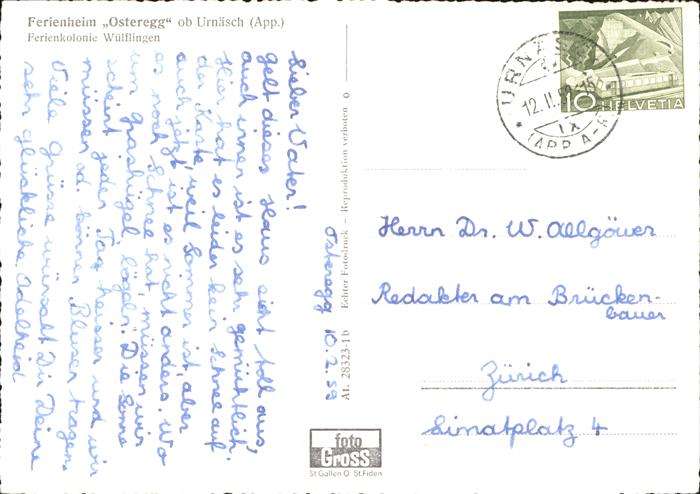 Ferienheim „Osteregg“ ob Urnäsch (App.)
Ferienkolonie Wülflingen
Osteregg 10.2.59
Lieber Vater!
Gelt dieses Haus sieht toll aus,
auch innen ist es sehr gemühtlich.
Hier hat es leider kein Schnee auf
der Karte, weil Sommer ist, aber
auch jetzt ist es nicht anders. Wo
es noch Schnee hat, müssen wir
um Grashügel bögeln. Die Sonne
scheint jeden Tag heisser und wir
müssen od. können Blusen tragen.
Viele Grüsse wünscht Dir Deine
sehr glückliche Adelheid
At. 28323-1b Echter Fotodruck — Reproduktion verboten o
foto
Gross
St Gallen O St Fiden
URNÄSCH
12.II.59
IX
(APP. A-R
10 HELVETIA
Herrn Dr. W. Allgöuer
Redakter am Brücken-
bauer
Zürich
Limatplatz 4